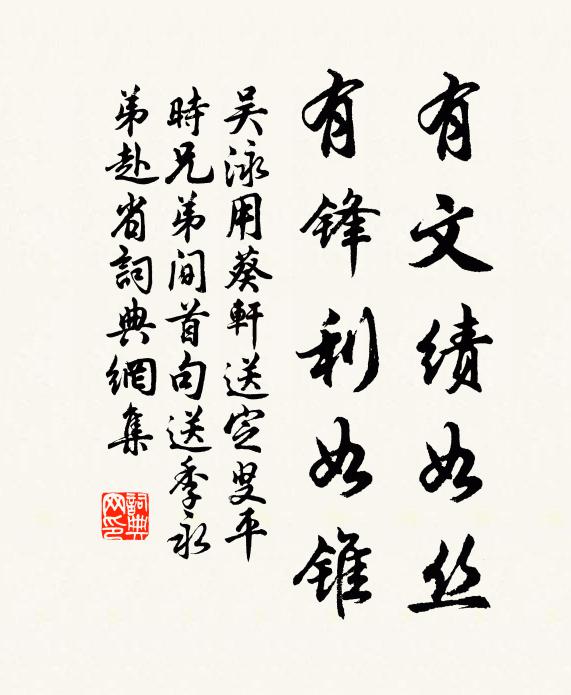 有文绩如丝
有锋利如锥
吴泳用葵軒送定叟平
時兄弟间首句送季永
弟赴省詞典網集
詞典网印